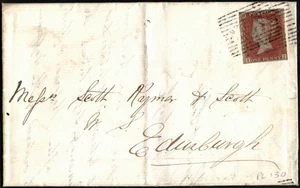 ONE PENNY
Messrs Scott Rymer & Scott
W. S.
Edinburgh
PL 130